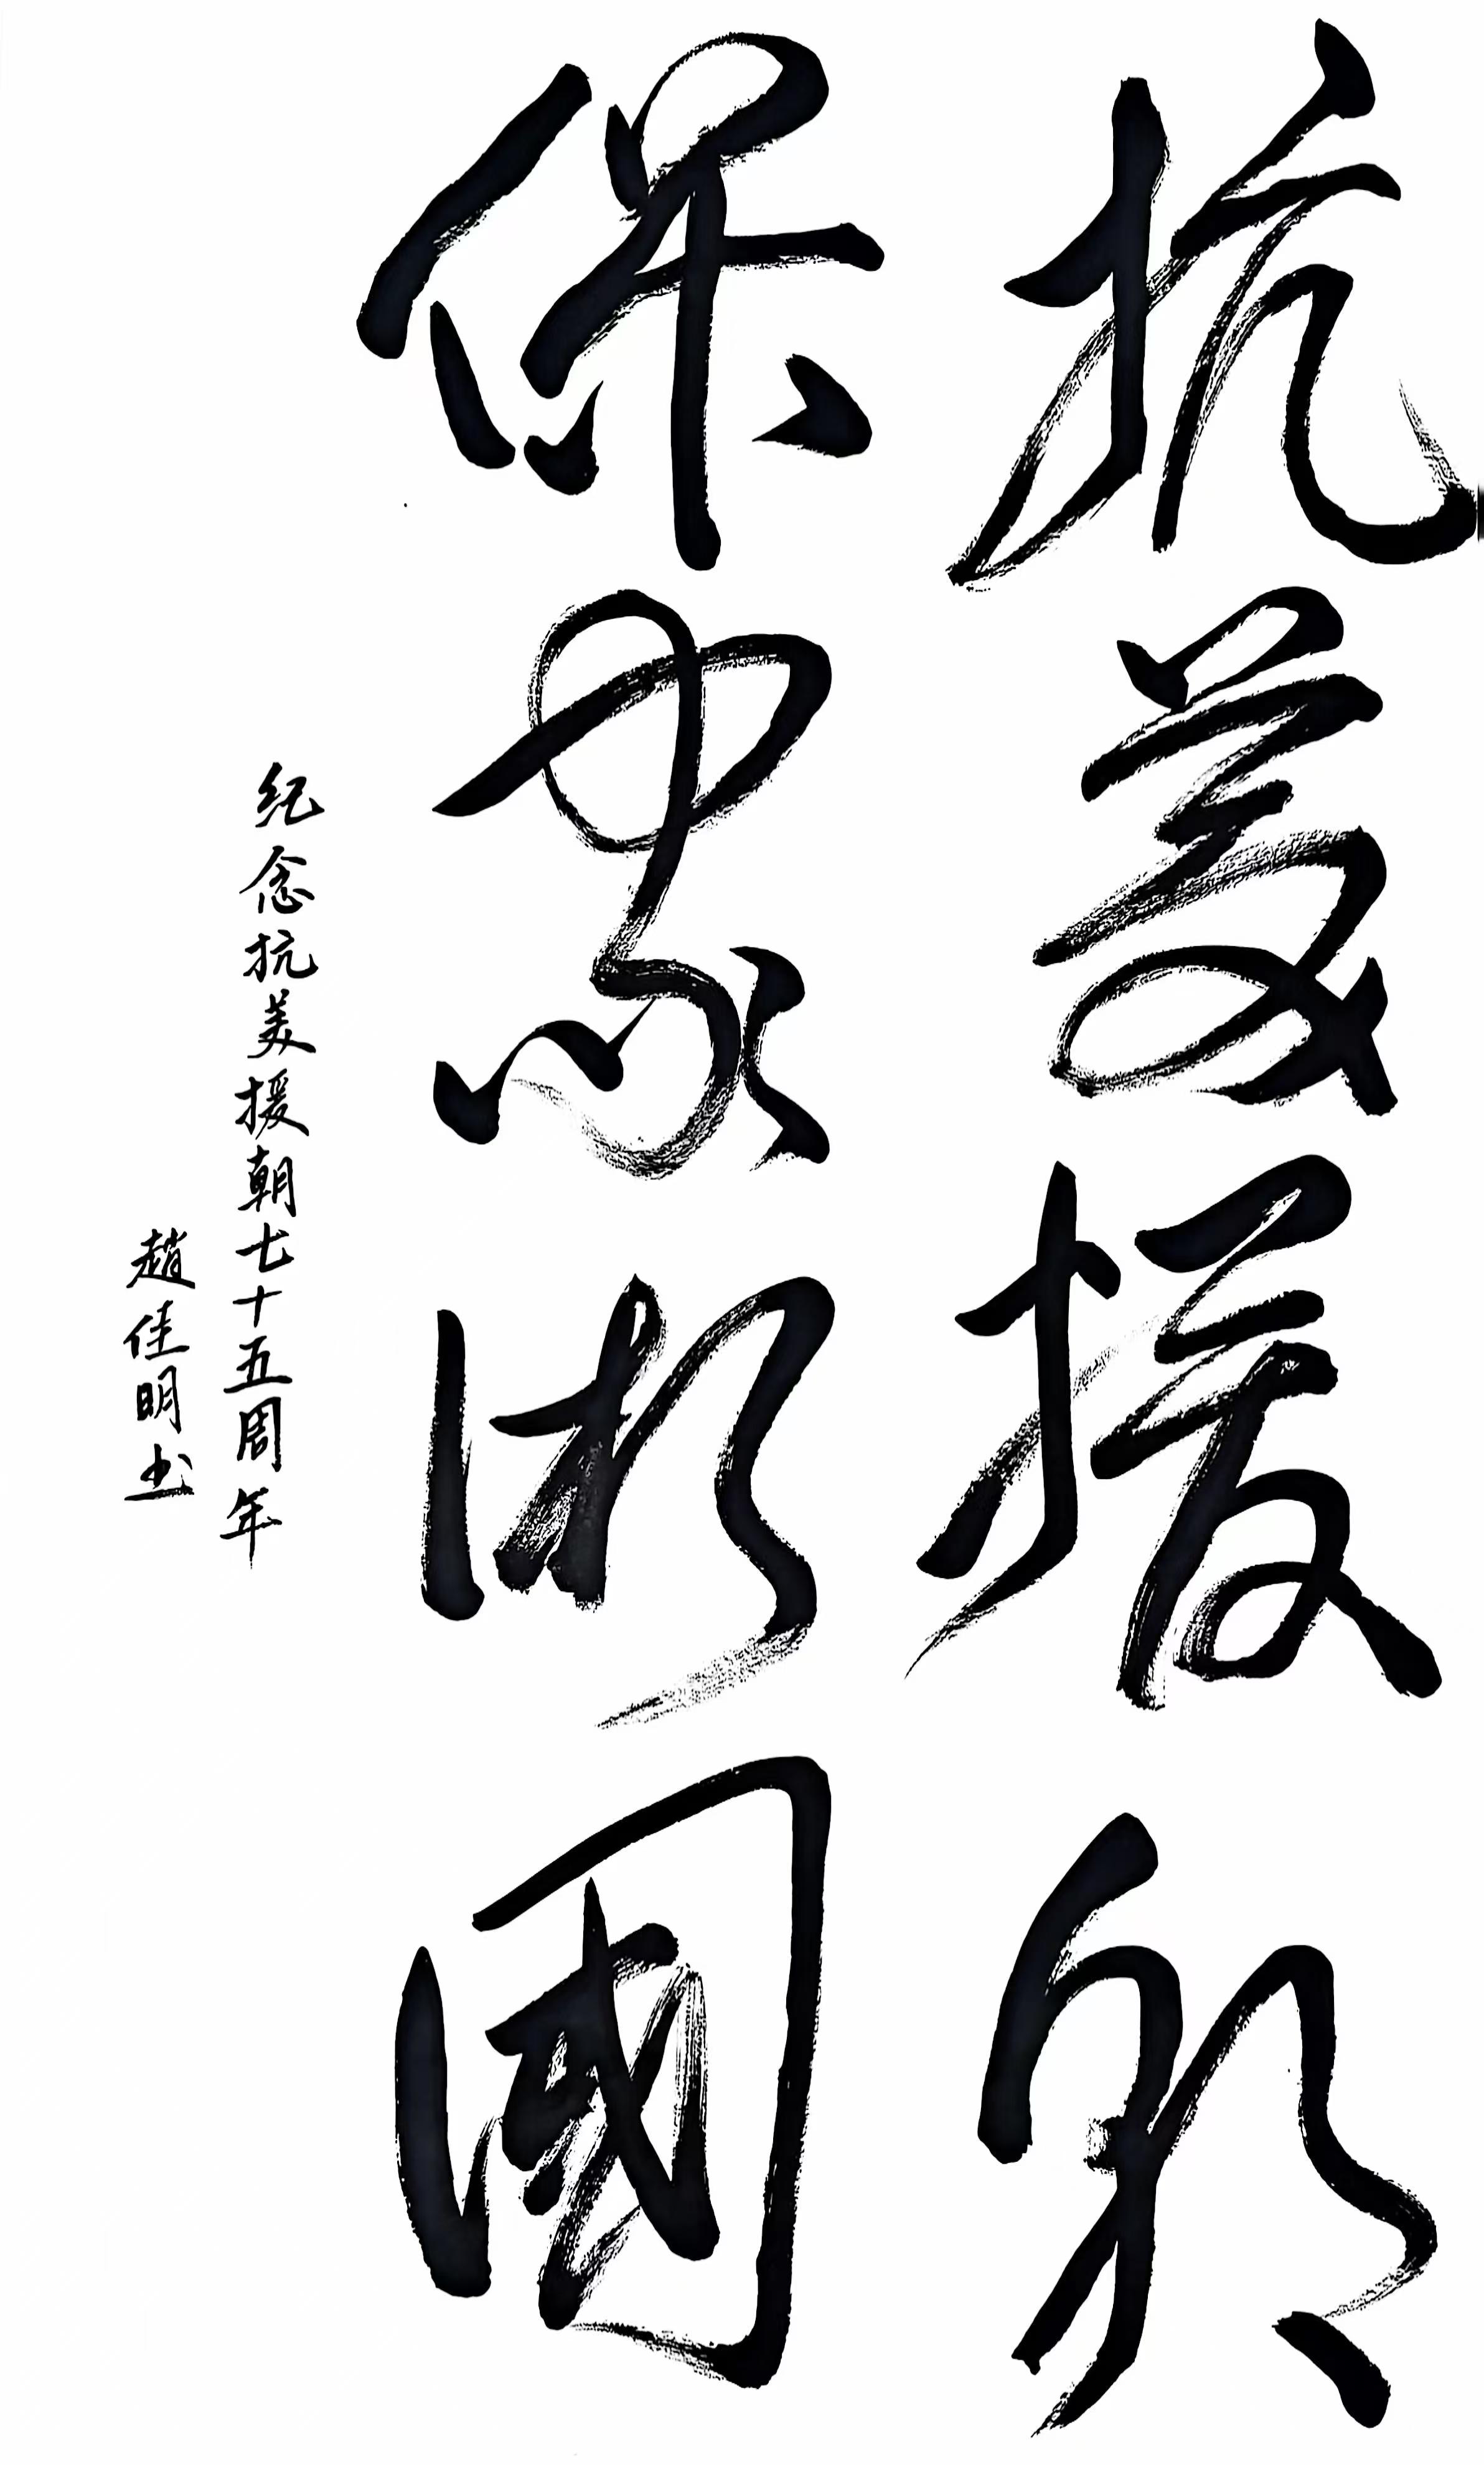 抗美援朝
保家衛國
纪念抗美援朝七十五周年
趙佳明书